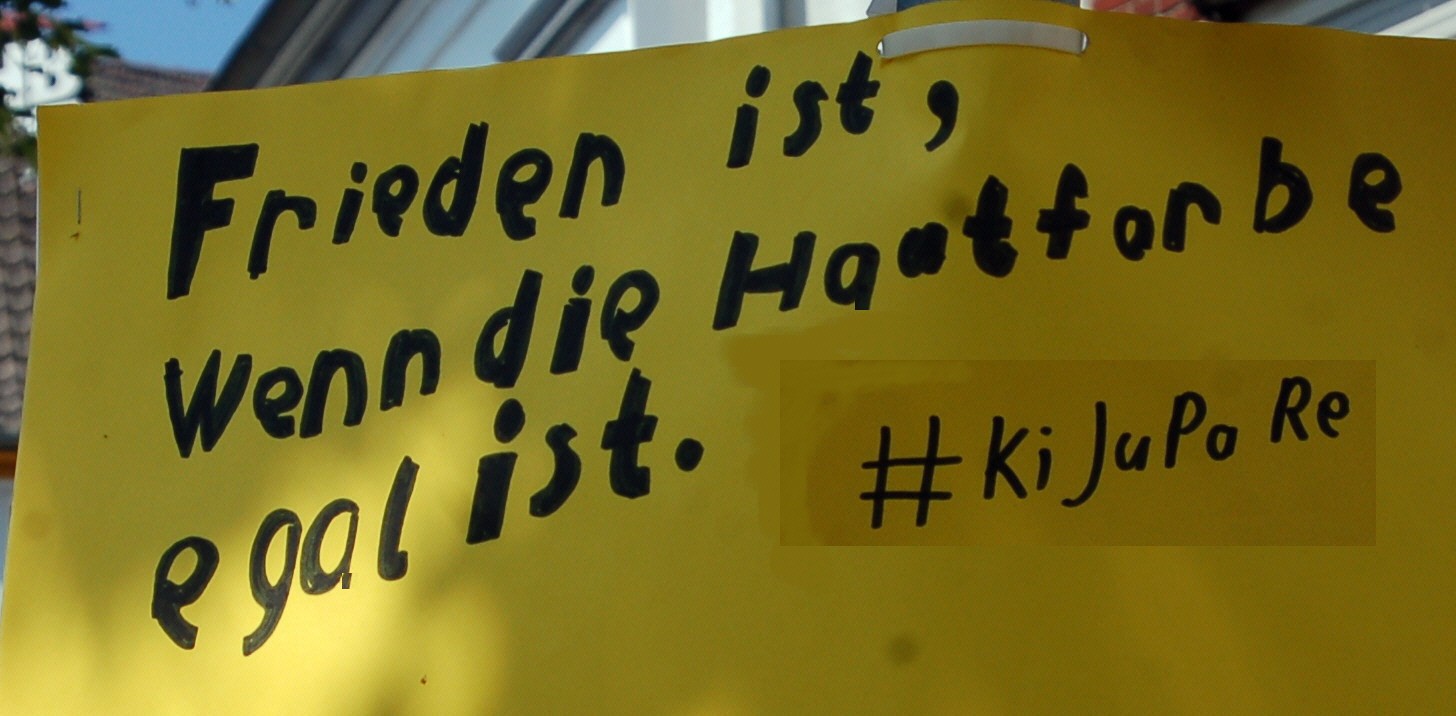 Frieden ist,
Wenn die Haatfarbe
egal ist.
#KiJuPaRe